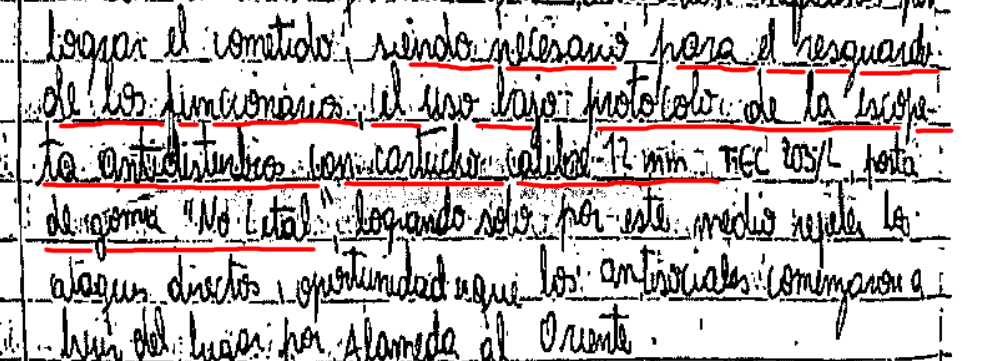 lograr el cometido, siendo necesario para el resguardo
de los funcionarios, el uso bajo protocolo de la escope-
ta antidisturbios con cartucho calibre 12 mm TEC 205/L, posta
de goma "No Letal", logrando solo por este medio repeler lo
ataques directos, oportunidad que los antisociales comenzaron a
huir del lugar por Alameda al Oriente.